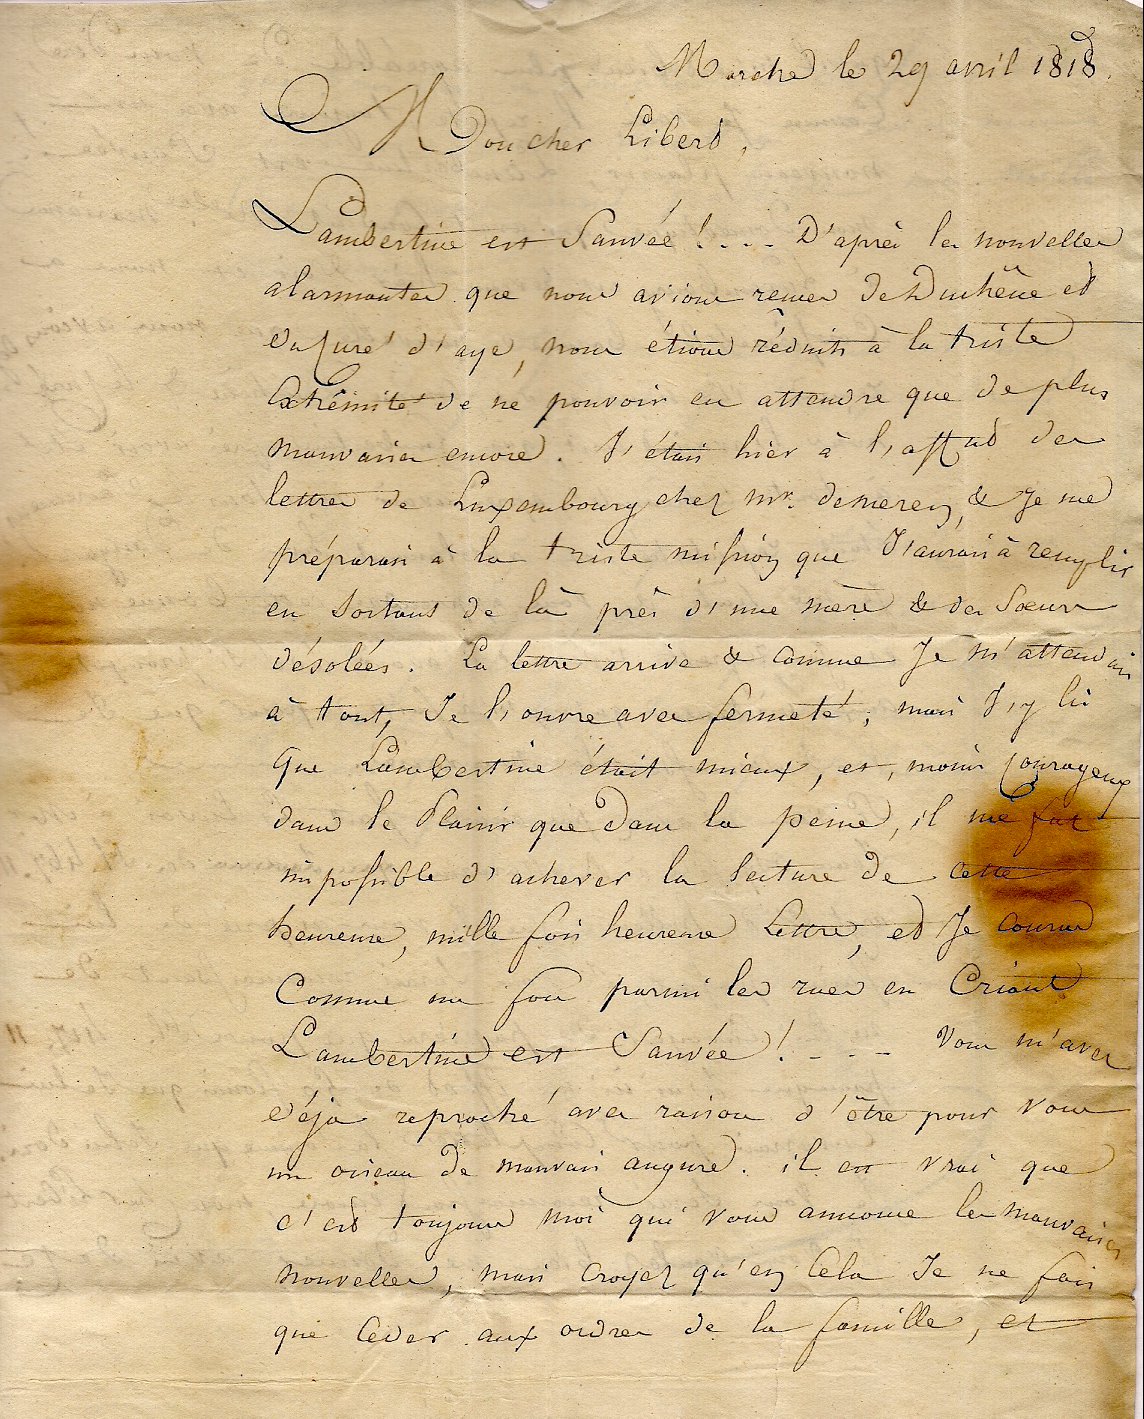 Marche le 29 avril 1818.
Mon cher Libert,
Lambertine est Sauvée !... D'après les nouvelles
alarmantes que nous avions reçues de Duchêne et
du Curé d'aye, nous étions réduits à la triste
Extrêmité de ne pouvoir en attendre que de plus
mauvaises encore. J'étais hier à l'affut des
lettres de Luxembourg chez mr. demerey, & Je me
préparais à la triste mission que J'aurais à remplir
en Sortant de là près d'une mère & des Sœurs
désolées. La lettre arrive & comme Je m'attendais
à tout, Je l'ouvre avec fermeté; mais J'y lis
Que Lambertine était mieux, et, moins Courageux
dans le Plaisir que dans la peine, il me fut
impossible d'achever la lecture de cette
heureuse, mille fois heureuse Lettre, et Je courus
Comme un fou parmi les rues en Criant
Lambertine est Sauvée !.... Vous m'avez
déja reproché avec raison d'être pour vous
un oiseau de mauvais augure. il est vrai que
c'est toujours moi qui vous annonce les mauvaises
nouvelles, mais Croyez qu'en Cela Je ne fais
que Céder aux ordres de la famille, et